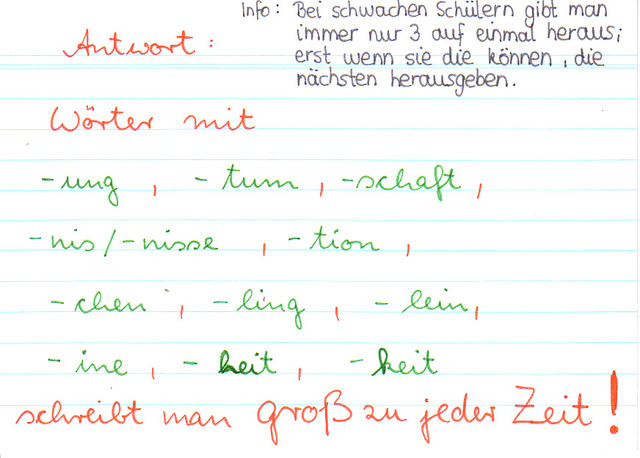 Info: Bei schwachen Schülern gibt man
immer nur 3 auf einmal heraus;
erst wenn sie die können, die
nächsten herausgeben.
Antwort:
Wörter mit
-ung, -tum, -schaft,
-nis/-nisse, -tion,
-chen, -ling, -lein,
-ine, -heit, -keit
schreibt man groß zu jeder Zeit!